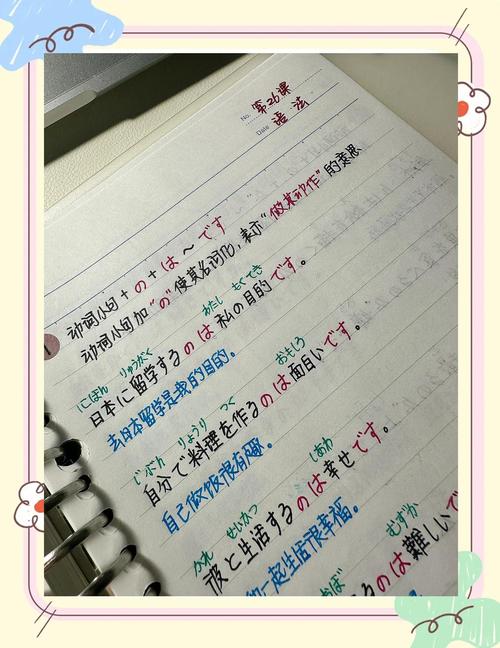 No. 第26课
Date 语法
动词小句 + の + は ～ です
动词小句加"の"使其名词化,表示"做某动作"的意思
にほん りゅうがく わたし もくてき
日本に留学するのは私の目的です。
去日本留学是我的目的。
じぶん りょうり つく おもしろ
自分で料理を作るのは面白いです。
自己做饭很有趣。
かれ せいかつ しあわ
彼と生活するのは幸せです。
一起生活很幸福。
むずか
るのは難しいで